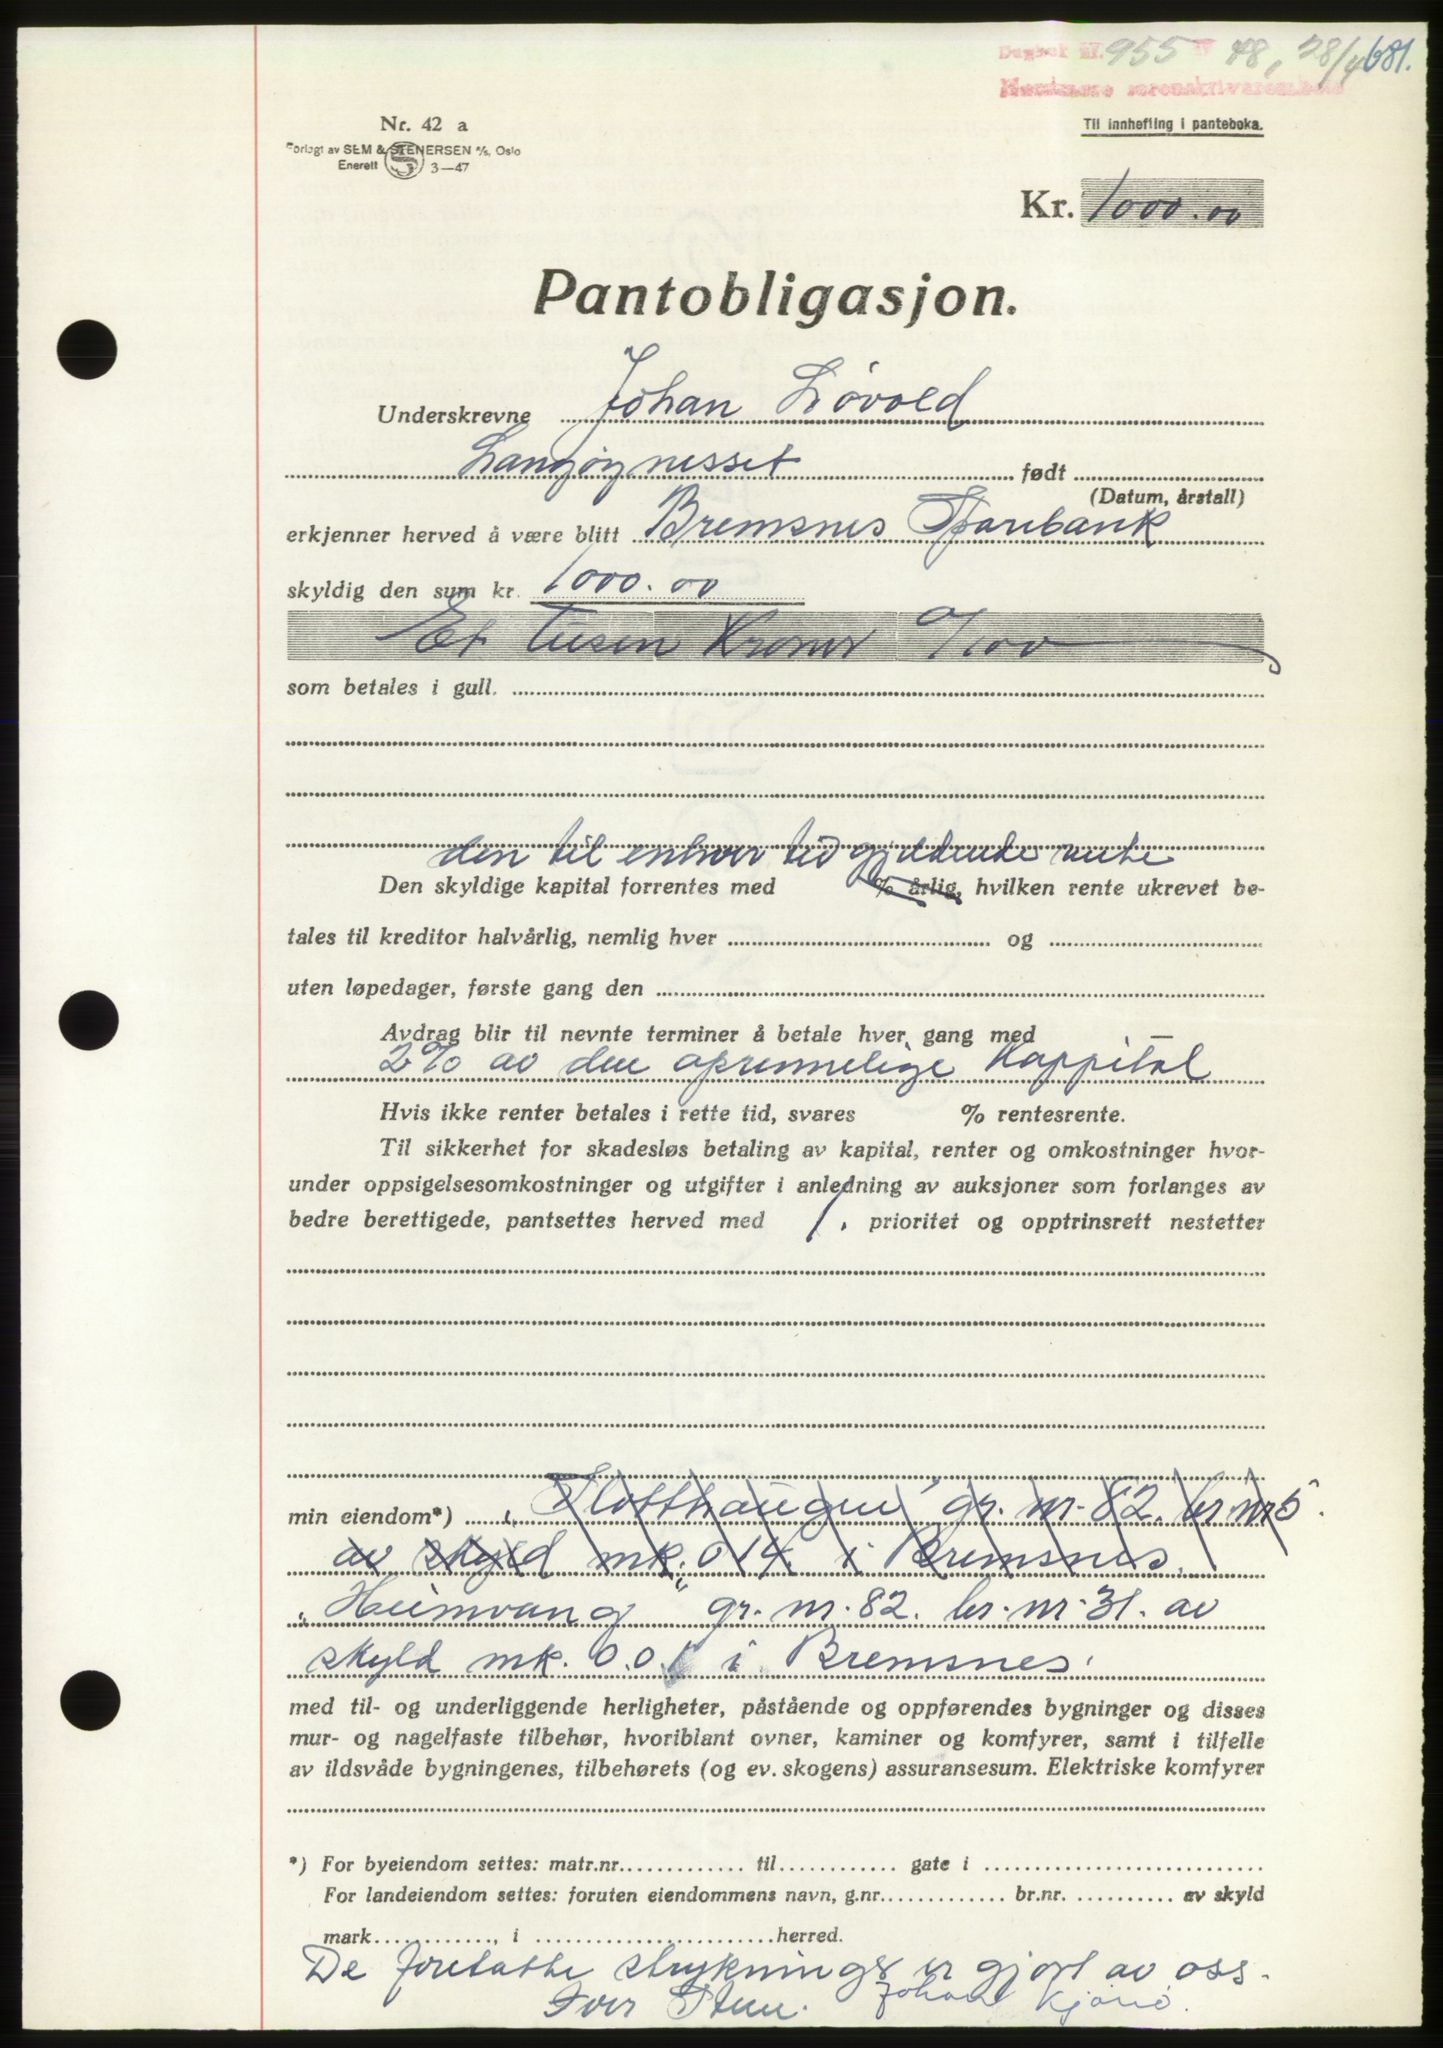 Dagbok nr. 955 48, 28/4 681.
Nordmøre sorenskriverembete
Til innhefting i panteboka.
Nr. 42 a
Forlagt av SEM & STENERSEN A/S, Oslo
Enerett 3—47
Kr. 1000.00
Pantobligasjon.
Underskrevne Johan Løvold
Langøynesset født
(Datum, årstall)
erkjenner herved å være blitt Bremsnes Sparebank
skyldig den sum kr. 1000.00
Et tusen Kroner 0/100
som betales i gull.
den til enhver tid gjeldende rente
Den skyldige kapital forrentes med % årlig, hvilken rente ukrevet be-
tales til kreditor halvårlig, nemlig hver og
uten løpedager, første gang den
Avdrag blir til nevnte terminer å betale hver gang med
2% av den oprinnelige Kappital
Hvis ikke renter betales i rette tid, svares % rentesrente.
Til sikkerhet for skadesløs betaling av kapital, renter og omkostninger hvor-
under oppsigelsesomkostninger og utgifter i anledning av auksjoner som forlanges av
bedre berettigede, pantsettes herved med 1. prioritet og opptrinsrett nestetter
min eiendom*) „Flotthaugen" gr. nr. 82. br. nr 5.
av skyld mk. 014. i Bremsnes.
„Heimvang" gr. nr. 82. br. nr. 31. av
skyld mk. 0.01 i Bremsnes.
med til- og underliggende herligheter, påstående og oppførendes bygninger og disses
mur- og nagelfaste tilbehør, hvoriblant ovner, kaminer og komfyrer, samt i tilfelle
av ildsvåde bygningenes, tilbehørets (og ev. skogens) assuransesum. Elektriske komfyrer
*) For byeiendom settes: matr.nr. til gate i
For landeiendom settes: foruten eiendommens navn, g.nr. br.nr. av skyld
mark , i herred.
De foretatte strykninger er gjort av oss.
Iver Johan